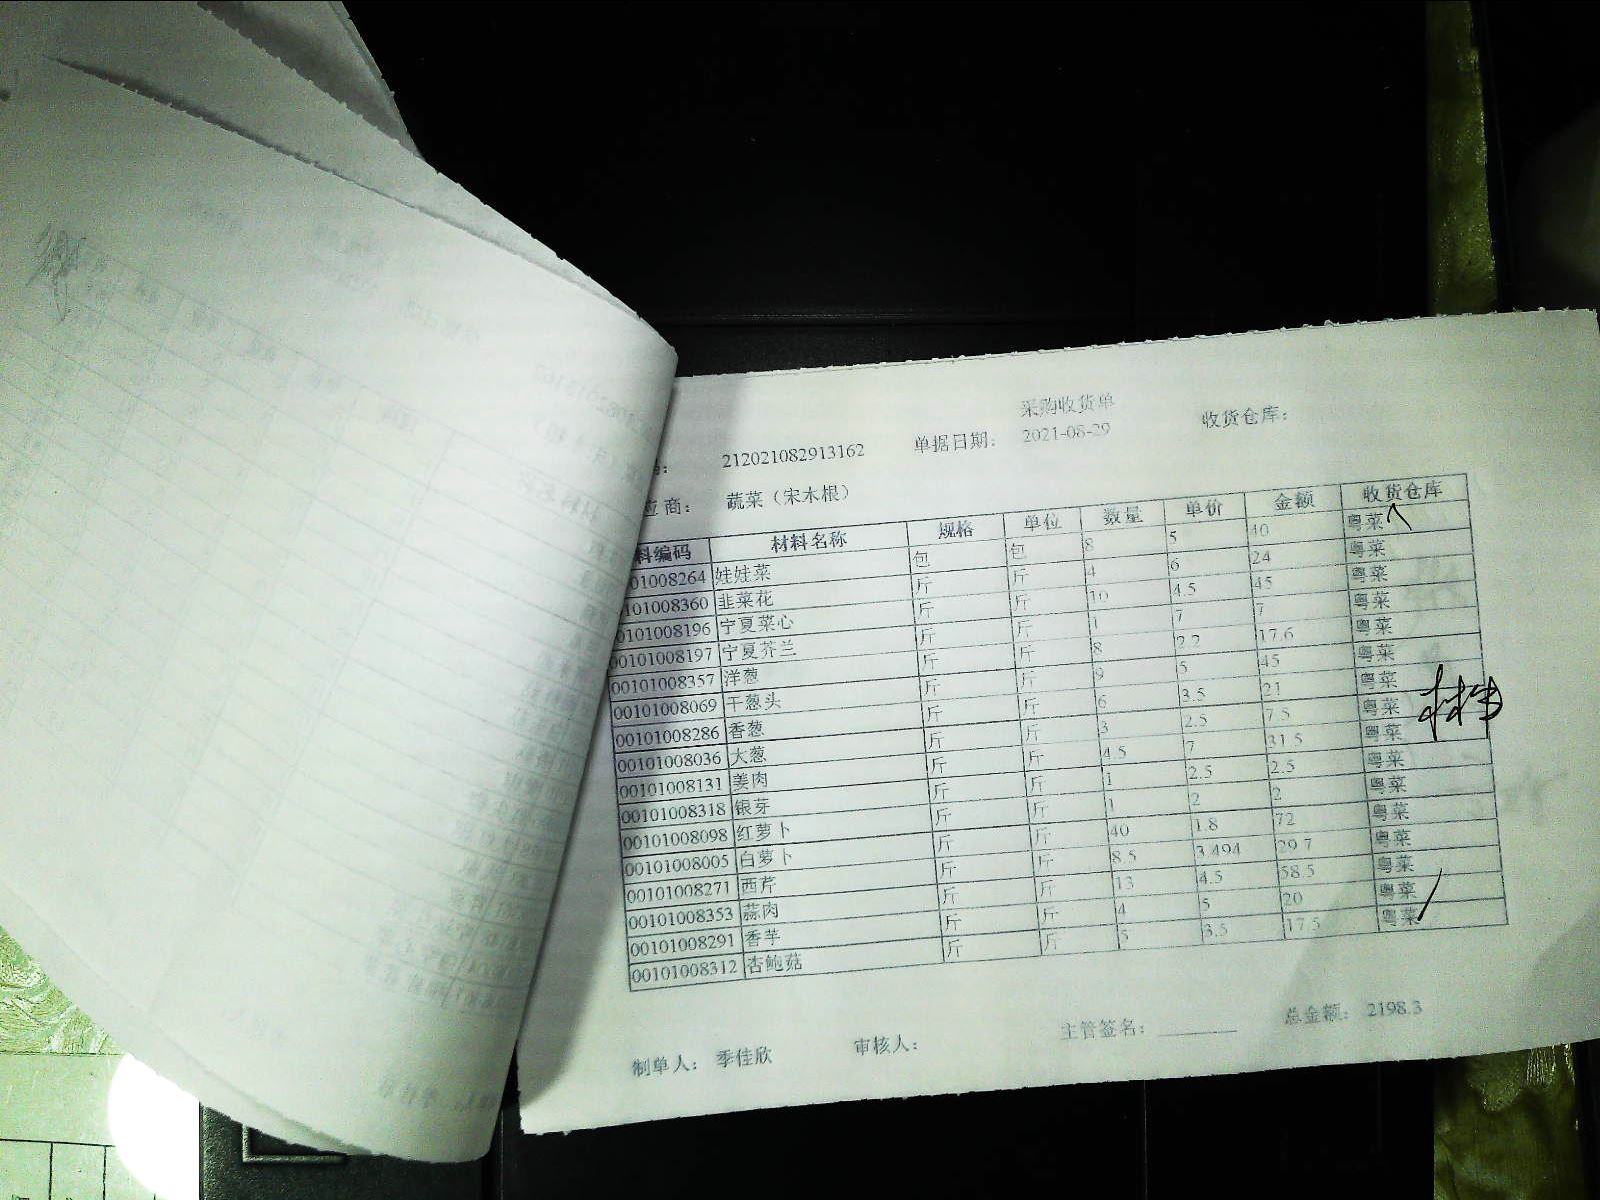 采购收货单
212021082913162 单据日期： 2021-08-29 收货仓库：
应商： 蔬菜（宋木根）
料编码 材料名称 规格 单位 数量 单价 金额 收货仓库
01008264 娃娃菜 包 包 8 5 40 粤菜
101008360 韭菜花 斤 斤 4 6 24 粤菜
0101008196 宁夏菜心 斤 斤 10 4.5 45 粤菜
00101008197 宁夏芥兰 斤 斤 1 7 7 粤菜
00101008357 洋葱 斤 斤 8 2.2 17.6 粤菜
00101008069 干葱头 斤 斤 9 5 45 粤菜
00101008286 香葱 斤 斤 6 3.5 21 粤菜
00101008036 大葱 斤 斤 3 2.5 7.5 粤菜
00101008131 姜肉 斤 斤 4.5 7 31.5 粤菜
00101008318 银芽 斤 斤 1 2.5 2.5 粤菜
00101008098 红萝卜 斤 斤 1 2 2 粤菜
00101008005 白萝卜 斤 斤 40 1.8 72 粤菜
00101008271 西芹 斤 斤 8.5 3.494 29.7 粤菜
00101008353 蒜肉 斤 斤 13 4.5 58.5 粤菜
00101008291 香芋 斤 斤 4 5 20 粤菜
00101008312 杏鲍菇 斤 斤 5 3.5 17.5 粤菜
制单人： 季佳欣 审核人： 主管签名： 总金额： 2198.3